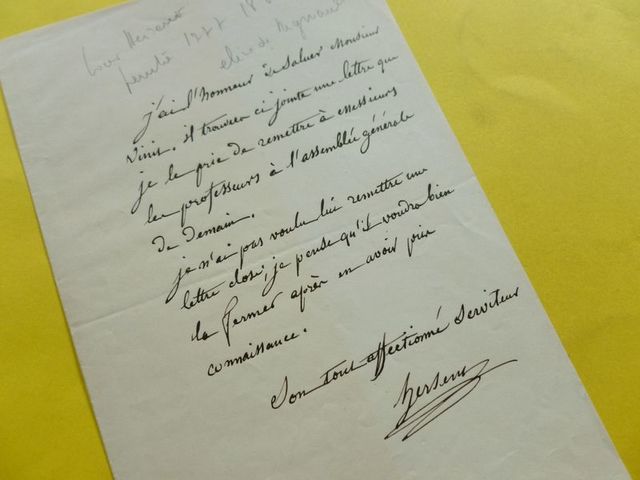 peintre 1777 18
élève de Regnault
j'ai l'honneur de Saluer Monsieur
Vinit. il trouvera ci jointe une lettre que
je le prie de remettre à messieurs
les professeurs à l'assemblée générale
de demain.
je n'ai pas voulu lui remettre une
lettre close; je pense qu'il voudra bien
la fermer après en avoir pris
connaissance.
Son tout affectionné Serviteur
hersent